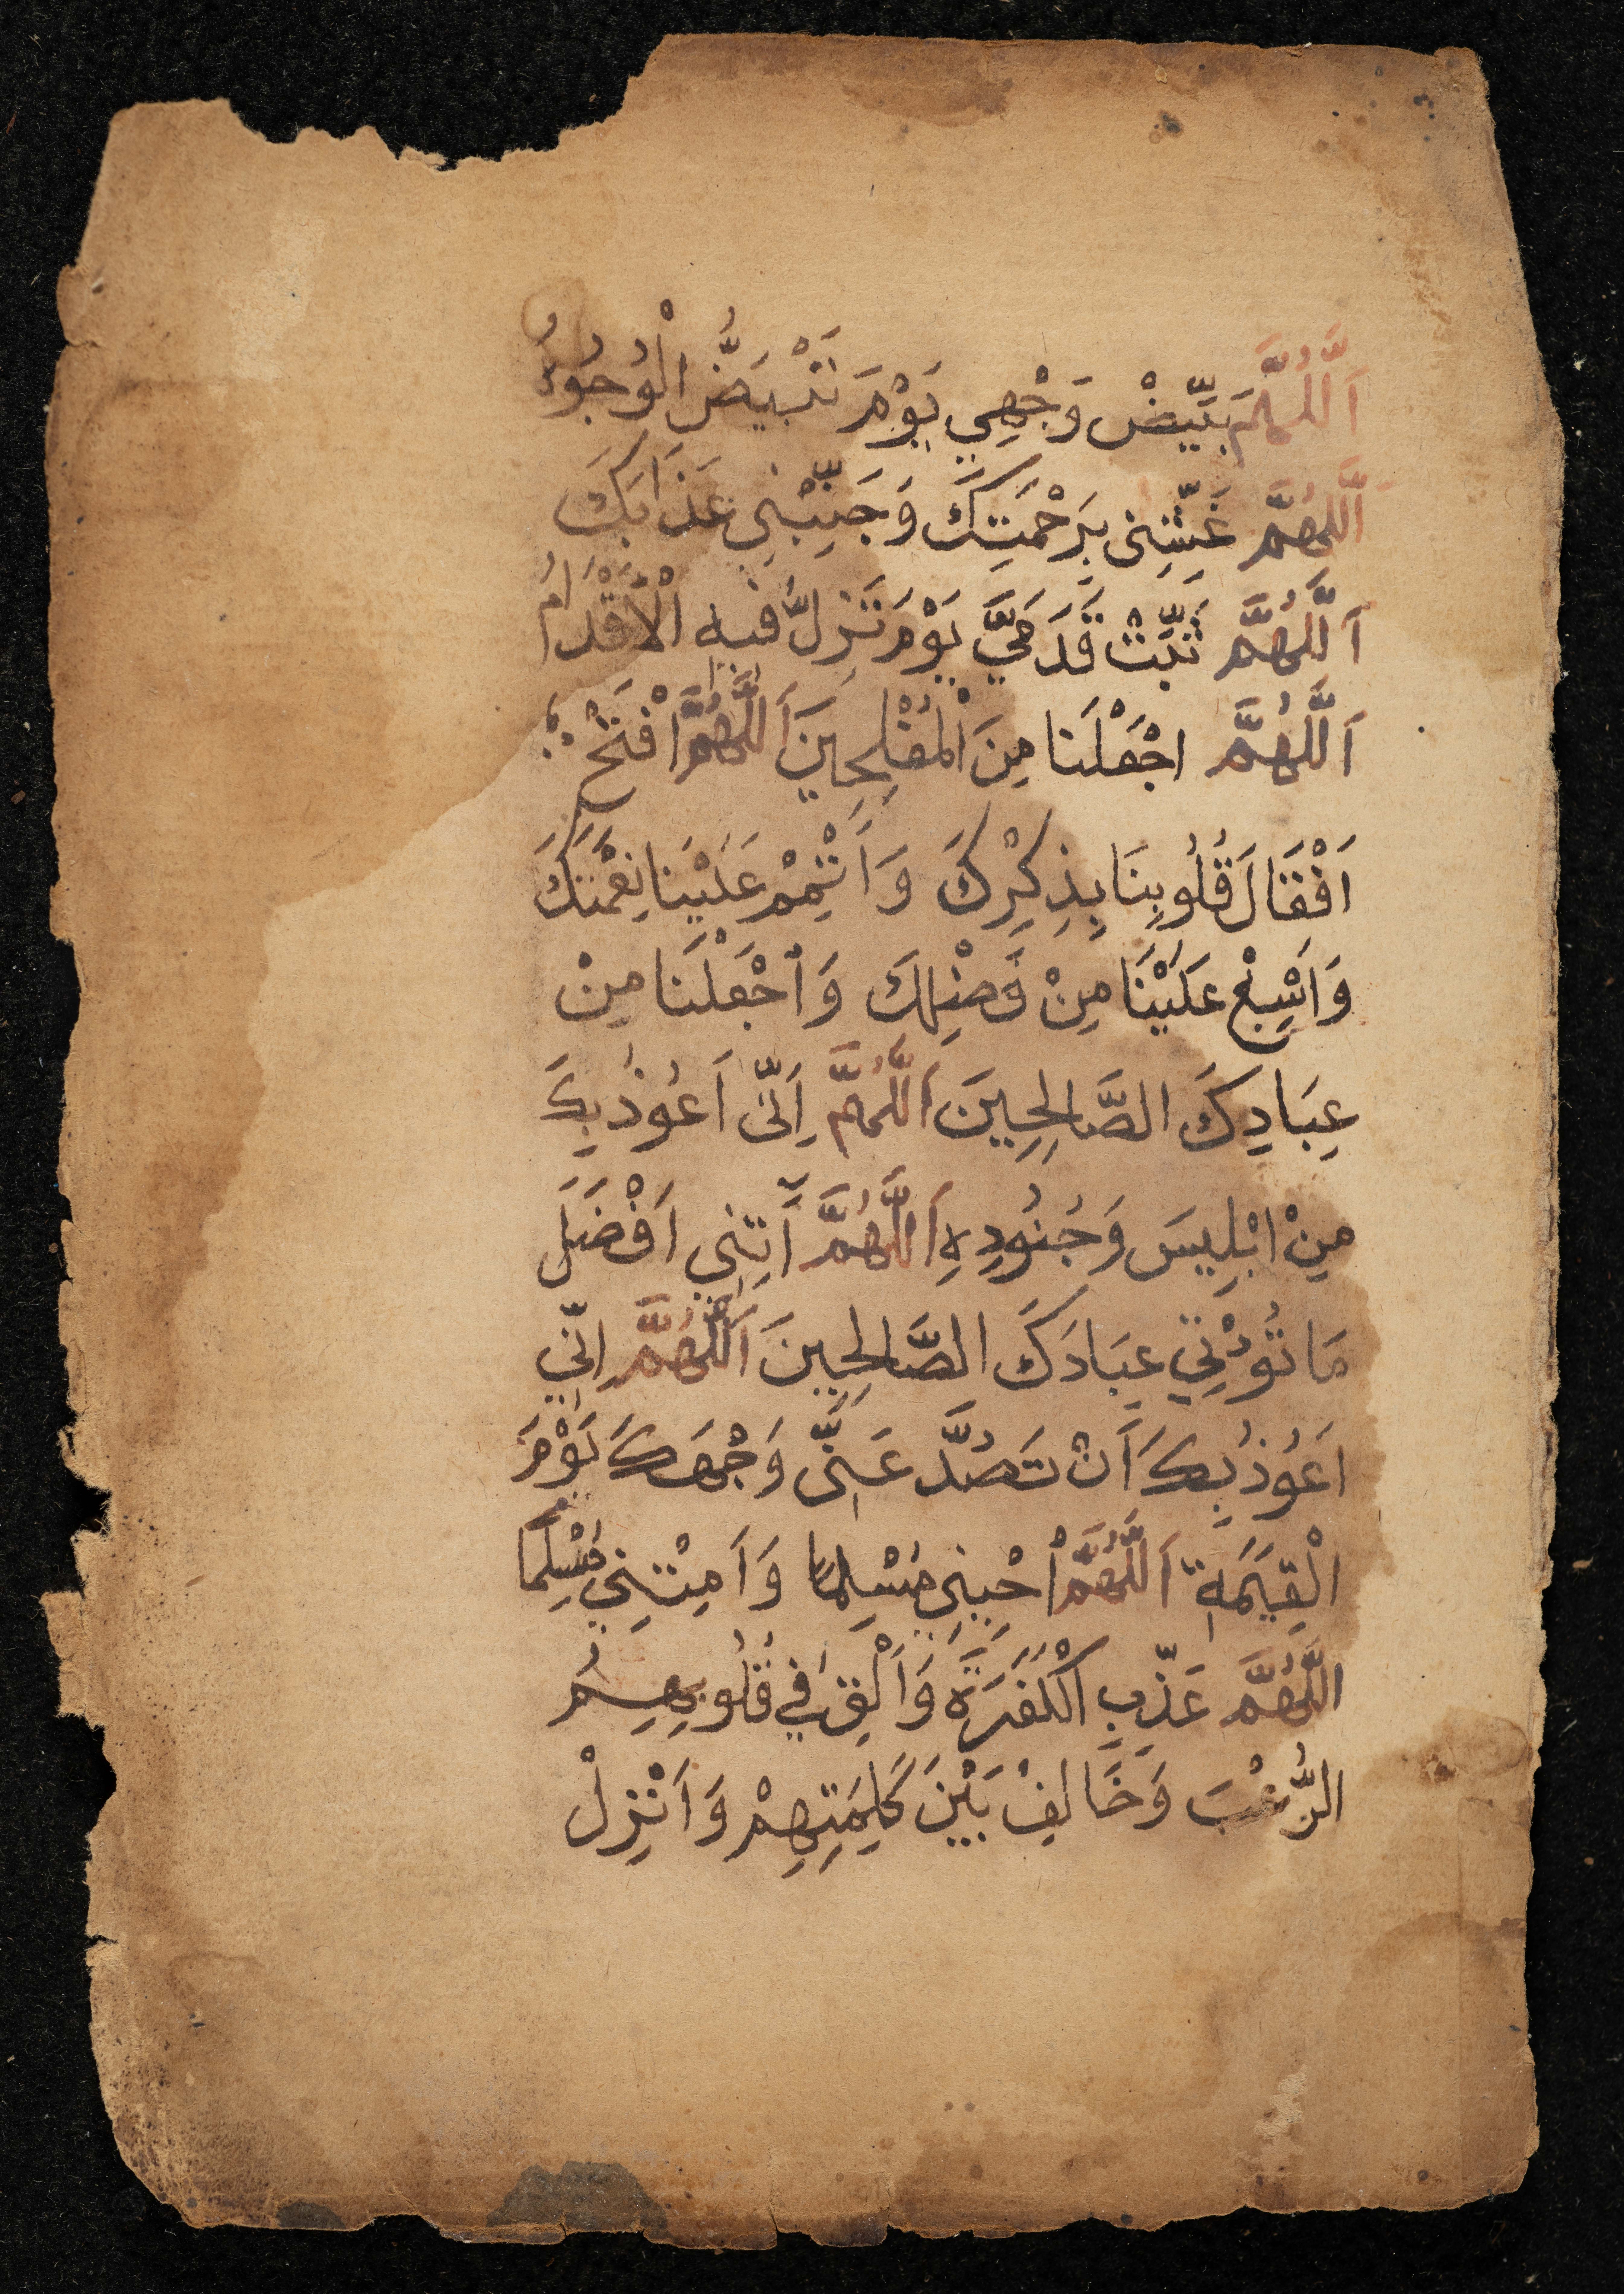 اَللَّهُمَّ بَيِّضْ وَجْهِي يَوْمَ تَبْيَضُّ الْوُجُوْهُ
اَللّٰهُمَّ غَشِّنِى بِرَحْمَتِكَ وَجَنِّبْنِي عَذَابَكَ
اَللَّهُمَّ ثَبِّتْ قَدَمَيَّ يَوْمَ تَزِلُّ فيه الْأَقْدَامُ
اَللَّهُمَّ اجْعَلْنَا مِنَ الْمُفْلِحِينَ اَللَّهُمَّ افْتَحْ
اَقْفَالَ قُلُوبِنَا بِذِكْرِكَ وَاَتْمِمْ عَلَيْنَا نِعْمَتَكَ
وَاَسْبِغْ عَلَيْنَا مِنْ فَضْلِكَ وَاجْعَلْنَا مِنْ
عِبَادِكَ الصَّالِحِينَ اَللَّهُمَّ اِنِّى اَعُوذُ بِكَ
مِنْ ابْلِيسَ وَجُنُودِهِ اَللَّهُمَّ آتِنِي اَفْضَلَ
مَا تُؤْتِي عِبَادَكَ الصَّالِحِينَ اَللّٰهُمَّ اِنِّي
اَعُوذُ بِكَ اَنْ تَصُدَّ عَنِّى وَجْهَكَ يَوْمَ
الْقِيَمَةِ اَللَّهُمَّ احْيِنِي مُسْلِمًا وَاَمِتْنِي مُسْلِمًا
اللَّهُمَّ عَذِّبِ الْكَفَرَةَ وَاَلْقِ فِي قُلُوبِهِمُ
الرُّعْبَ وَخَالِفْ بَيْنَ كَلِمَتِهِمْ وَاَنْزِلْ